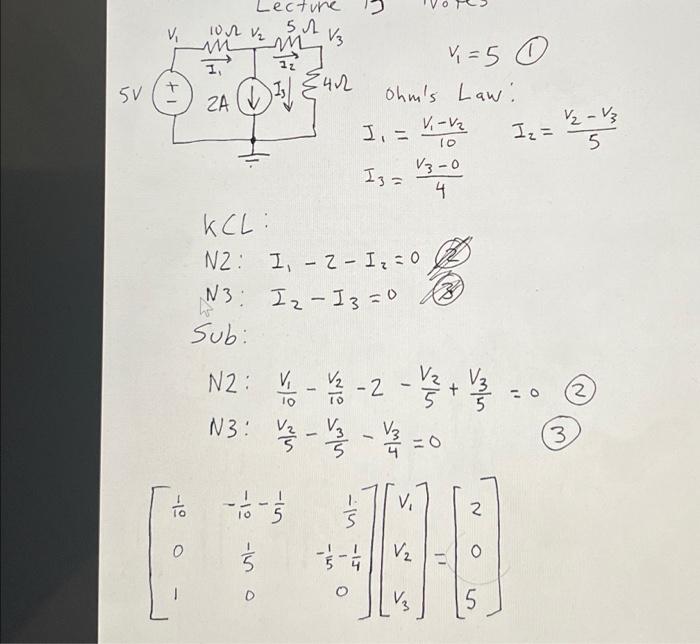 Lecture 15 Notes
V₁ 10Ω V₂ 5Ω V₃
I₁ I₂
5V + - 2A I₃ 4Ω
V₁ = 5 ①
Ohm's Law:
I₁ = (V₁-V₂)/10 I₂ = (V₂-V₃)/5
I₃ = (V₃-0)/4
KCL:
N2: I₁ - 2 - I₂ = 0 ②
N3: I₂ - I₃ = 0 ③
Sub:
N2: V₁/10 - V₂/10 - 2 - V₂/5 + V₃/5 = 0 ②
N3: V₂/5 - V₃/5 - V₃/4 = 0 ③
[1/10 -1/10-1/5 1/5] [V₁] [2]
[0 1/5 -1/5-1/4] [V₂] = [0]
[1 0 0] [V₃] [5]